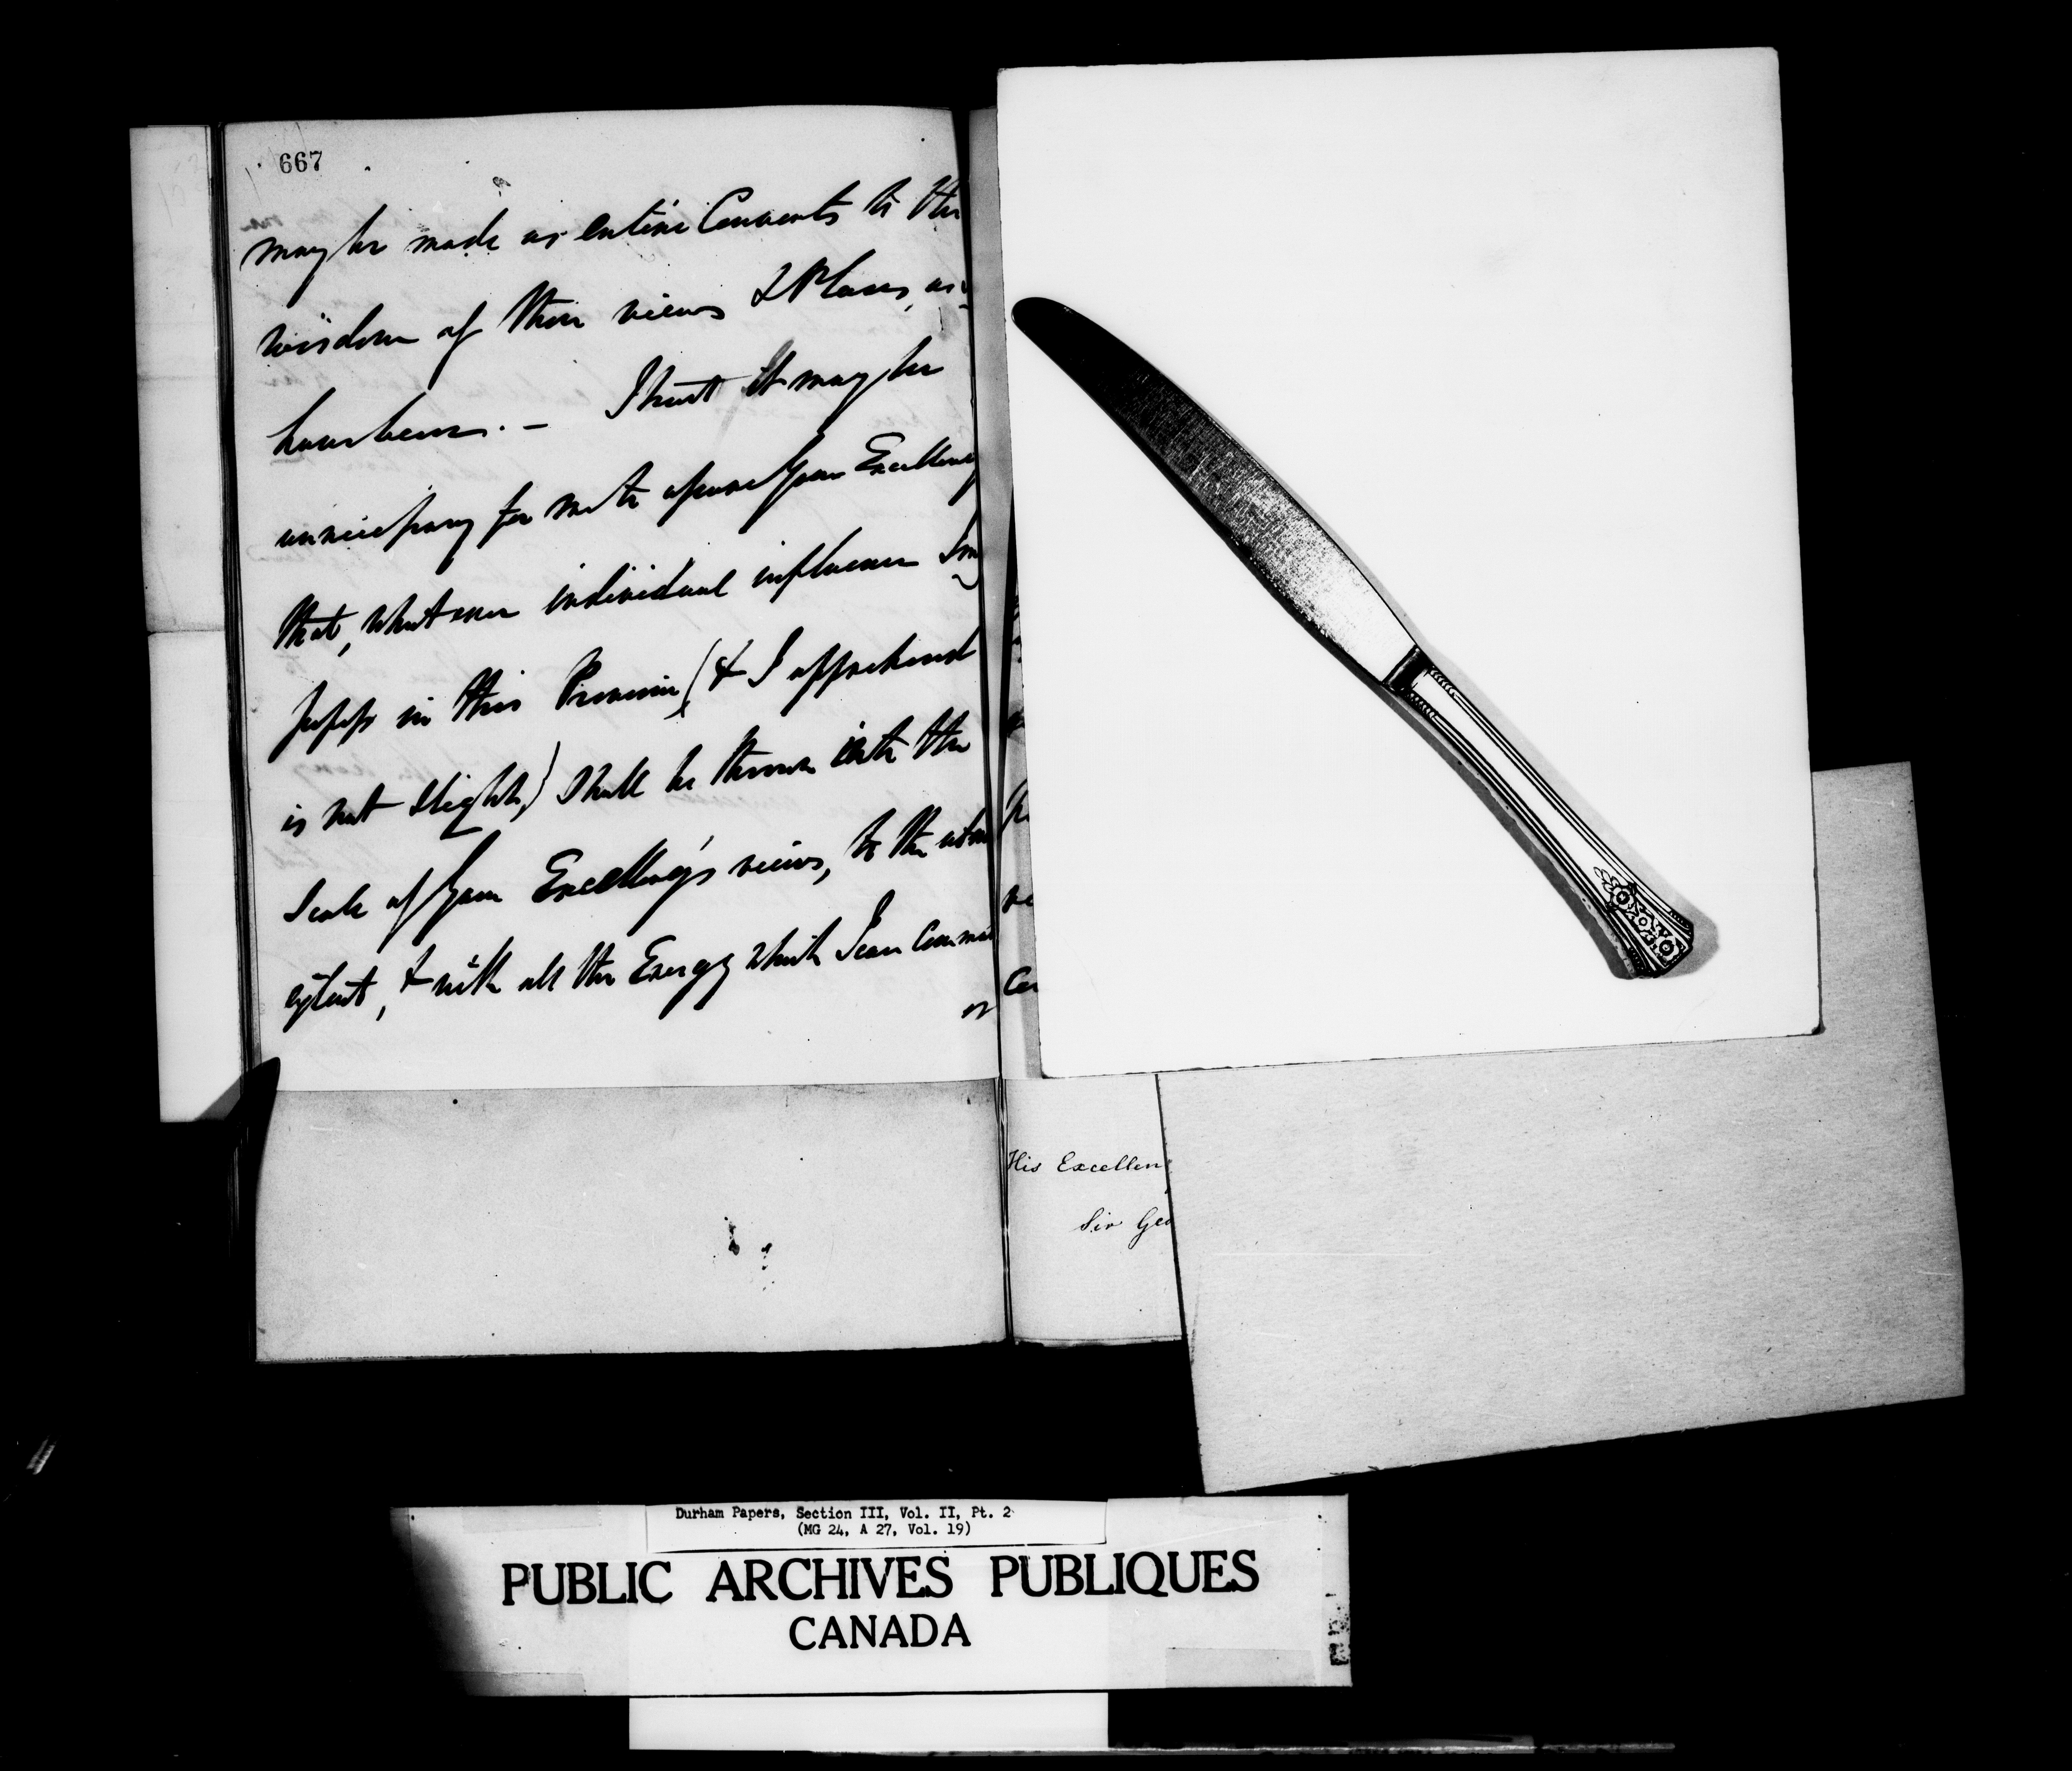 667
may be made as entire Converts to the
wisdom of their views & Plans, as
have been. — I trust it may be
unnecessary for me to assure Your Excellency
that, whatever individual influence I may
possess in this Province (& I apprehend
is not slight) shall be thrown into the
Scale of Your Excellency's views, to the utmo
extent, & with all the Energy which I can comma
or
His Excellen
Sir Geo
Durham Papers, Section III, Vol. II, Pt. 2
(MG 24, A 27, Vol. 19)
PUBLIC ARCHIVES PUBLIQUES
CANADA